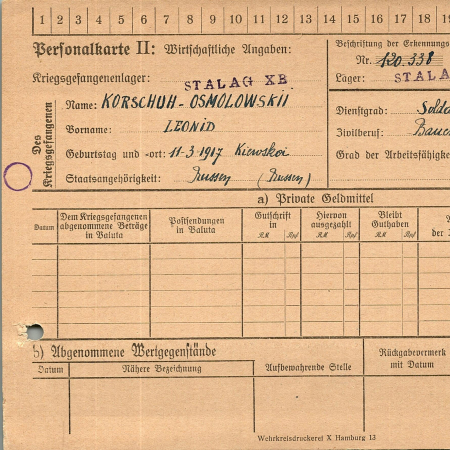 1 2 3 4 5 6 7 8 9 10 11 12 13 14 15 16 17 18 19
Personalkarte II: Wirtschaftliche Angaben:
Beschriftung der Erkennungs
Nr. 120.338
Kriegsgefangenenlager: STALAG XB
Lager: STALA
Des Kriegsgefangenen
Name: KORSCHUH-OSMOLOWSKII
Vorname: LEONID
Geburtstag und -ort: 11-3-1917 Kiewskoi
Staatsangehörigkeit: Russen (Russen)
Dienstgrad: Solda
Zivilberuf: Bauer
Grad der Arbeitsfähigke
a) Private Geldmittel
Datum
Dem Kriegsgefangenen abgenommene Beträge in Valuta
Postsendungen in Valuta
Gutschrift in
RM Rpf
Hiervon ausgezahlt
RM Rpf
Bleibt Guthaben
RM Rpf
der
b) Abgenommene Wertgegenstände
Datum
Nähere Bezeichnung
Aufbewahrende Stelle
Rückgabevermerk mit Datum
Wehrkreisdruckerei X Hamburg 13